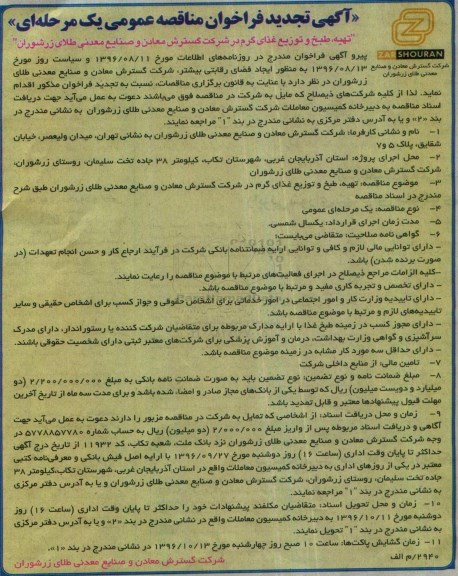 «آگهی تجدید فراخوان مناقصه عمومی یک مرحله‌ای»
"تهیه، طبخ و توزیع غذای گرم در شرکت گسترش معادن و صنایع معدنی طلای زرشوران"
ZAR SHOURAN
شرکت گسترش معادن و صنایع معدنی طلای زرشوران
پیرو آگهی فراخوان مندرج در روزنامه‌های اطلاعات مورخ ۱۳۹۶/۰۸/۱۱ و سیاست روز مورخ
۱۳۹۶/۰۸/۱۳ به منظور ایجاد فضای رقابتی بیشتر، شرکت گسترش معادن و صنایع معدنی طلای
زرشوران در نظر دارد با عنایت به قانون برگزاری مناقصات، نسبت به تجدید فراخوان مذکور اقدام
نماید. لذا از کلیه شرکت‌های ذیصلاح که مایل به شرکت در مناقصه فوق می‌باشند دعوت به عمل می‌آید جهت دریافت
اسناد مناقصه به دبیرخانه کمیسیون معاملات شرکت گسترش معادن و صنایع معدنی طلای زرشوران به نشانی مندرج در
بند «۲» و یا به آدرس دفتر مرکزی به نشانی مندرج در بند "۱" مراجعه نمایند.
۱- نام و نشانی کارفرما: شرکت گسترش معادن و صنایع معدنی طلای زرشوران به نشانی تهران، میدان ولیعصر، خیابان
شقایق، پلاک ۵ و ۷
۲- محل اجرای پروژه: استان آذربایجان غربی، شهرستان تکاب، کیلومتر ۳۸ جاده تخت سلیمان، روستای زرشوران،
شرکت گسترش معادن و صنایع معدنی طلای زرشوران
۳- موضوع مناقصه: تهیه، طبخ و توزیع غذای گرم در شرکت گسترش معادن و صنایع معدنی طلای زرشوران طبق شرح
مندرج در اسناد مناقصه
۴- نوع مناقصه: یک مرحله‌ای عمومی
۵- مدت زمان اجرای قرارداد: یکسال شمسی.
۶- گواهی نامه صلاحیت: متقاضی می‌بایست:
- دارای توانایی مالی لازم و کافی و توانایی ارایه ضمانتنامه بانکی شرکت در فرآیند ارجاع کار و حسن انجام تعهدات (در
صورت برنده شدن) باشد.
-کلیه الزامات مراجع ذیصلاح در اجرای فعالیت‌های مرتبط با موضوع مناقصه را رعایت نمایند.
- دارای تخصص و تجربه کاری مفید و مرتبط با موضوع مناقصه باشد.
- دارای تاییدیه وزارت کار و امور اجتماعی در امور خدماتی برای اشخاص حقوقی و جواز کسب برای اشخاص حقیقی و سایر
تاییدیه‌های لازم و مرتبط با موضوع مناقصه باشد.
- دارای مجوز کسب در زمینه طبخ غذا با ارایه مدارک مربوطه برای متقاضیان شرکت کننده یا رستوراندار، دارای مدرک
سرآشپزی و گواهی وزارت بهداشت، درمان و آموزش پزشکی برای شرکت‌های معتبر ثبتی دارای شخصیت حقوقی باشند.
- دارای حداقل سه مورد کار مشابه در زمینه موضوع مناقصه باشد.
۷- تامین مالی: از منابع داخلی شرکت
۸- مبلغ ضمانت نامه و نوع تضمین: نوع تضمین باید به صورت ضمانت نامه بانکی به مبلغ ۲/۲۰۰/۰۰۰/۰۰۰ (دو
میلیارد و دویست میلیون) ریال که توسط یکی از بانک‌های مجاز صادر و امضا، شده باشد و برای مدت سه ماه از تاریخ آخرین
مهلت قبول پیشنهادها معتبر و قابل تمدید باشد.
۹- زمان و محل دریافت اسناد: از اشخاصی که تمایل به شرکت در مناقصه مزبور را دارند دعوت به عمل می‌آید جهت
آگاهی و دریافت اسناد مربوطه پس از واریز مبلغ ۲/۰۰۰/۰۰۰ (دو میلیون) ریال به حساب شماره ۵۷۷۸۸۵۷۷۸۰ در
وجه شرکت گسترش معادن و صنایع معدنی طلای زرشوران نزد بانک ملت، شعبه تکاب، کد ۱۱۹۳۲ از تاریخ درج آگهی
حداکثر تا پایان وقت اداری (ساعت ۱۶) روز دوشنبه مورخ ۱۳۹۶/۰۹/۲۷ با ارایه اصل فیش بانکی و معرفی‌نامه کتبی
معتبر در یکی از روزهای اداری به دبیرخانه کمیسیون معاملات واقع در استان آذربایجان غربی، شهرستان تکاب،کیلومتر ۳۸
جاده تخت سلیمان، روستای زرشوران، شرکت گسترش معادن و صنایع معدنی طلای زرشوران و یا به آدرس دفتر مرکزی
به نشانی مندرج در بند "۱" مراجعه نمایند.
۱۰- زمان و محل تحویل اسناد: متقاضیان مکلفند پیشنهادات خود را حداکثر تا پایان وقت اداری (ساعت ۱۶) روز
دوشنبه مورخ ۱۳۹۶/۱۰/۱۱ به دبیرخانه کمیسیون معاملات واقع در نشانی مندرج در بند «۲» و یا به آدرس دفتر مرکزی
به نشانی مندرج در بند "۱" تحویل نمایند.
۱۱- زمان گشایش پاکت‌ها، ساعت ۱۰ صبح روز چهارشنبه مورخ ۱۳۹۶/۱۰/۱۳ در نشانی مندرج در بند «۱».
۲۹۴۰/م الف
شرکت گسترش معادن و صنایع معدنی طلای زرشوران